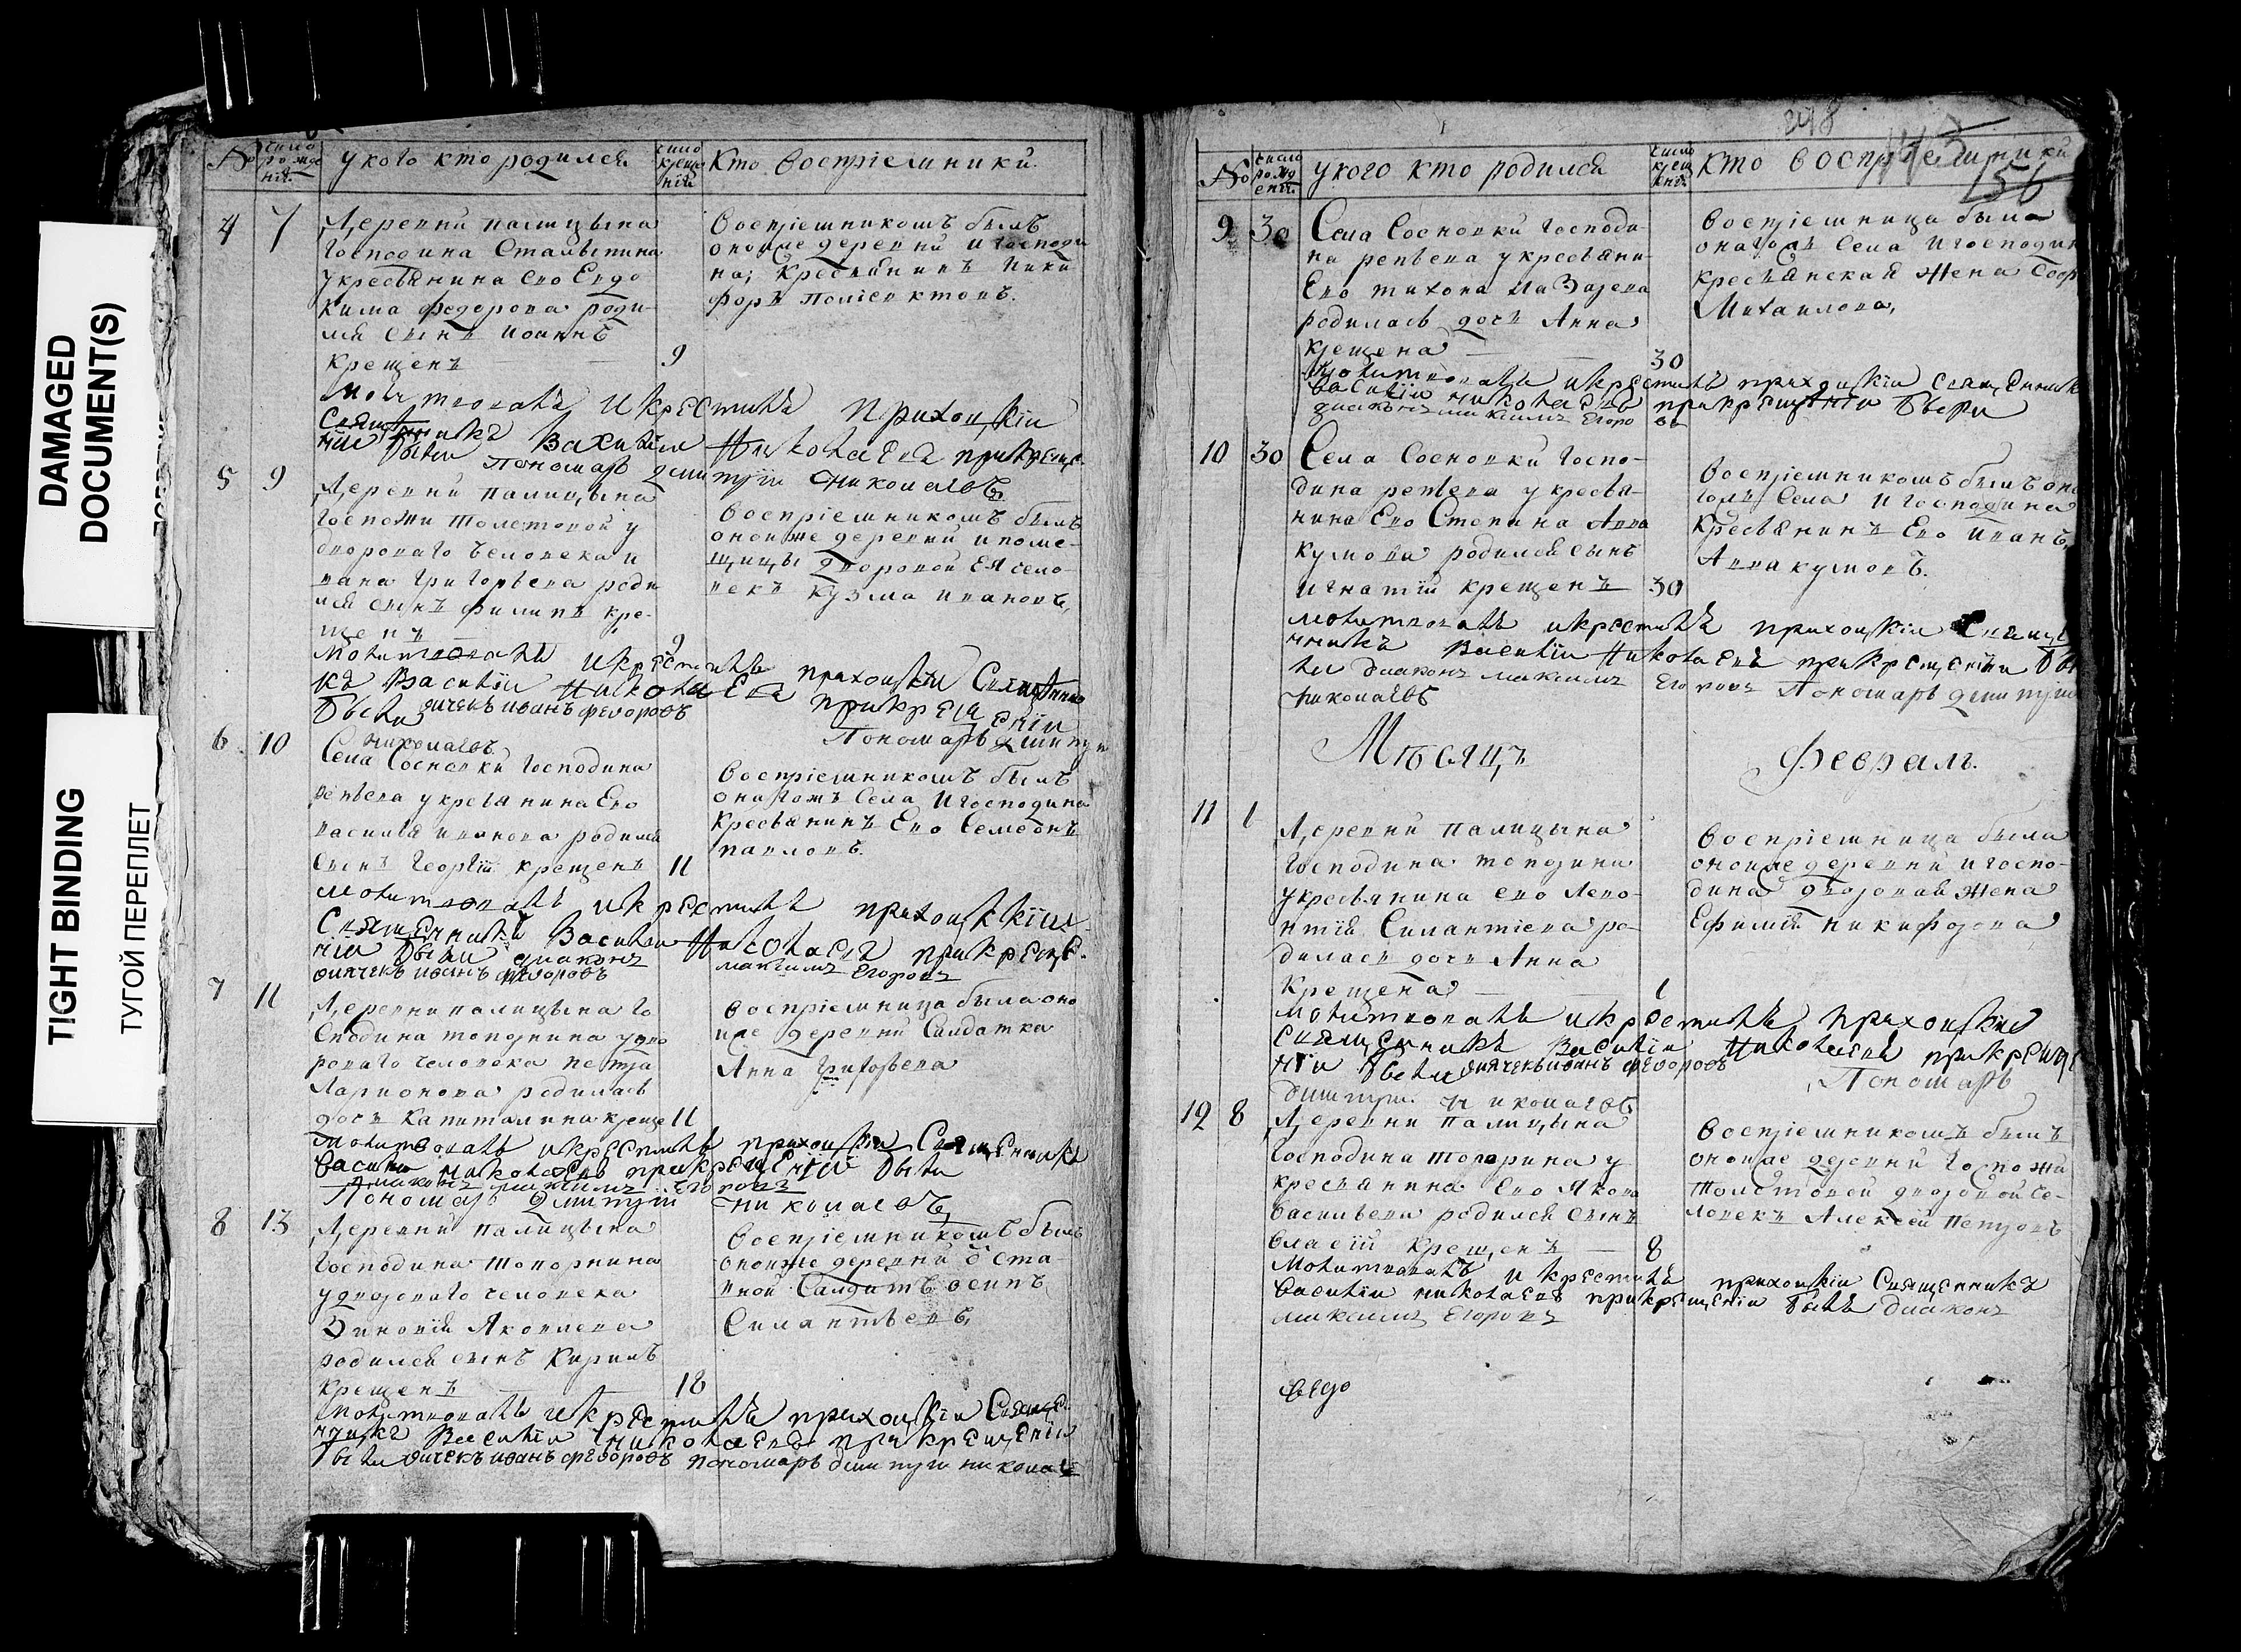 DAMAGED
DOCUMENT(S)
TIGHT BINDING
ТУГОЙ ПЕРЕПЛЕТ
№ число рожде нія
у кого кто родился
число креще нія
Кто воспріемники
4 7
Деревни палицына
Господина Сталыпина
укресьянина Его Евдо
кима федорова роди-
лся сынъ иоаннъ
крещенъ 9
воспріемникомъ былъ
оноиже деревни и господи
на, кресьянинъ Ники
форъ
молитвовалъ и крестилъ приходскіи
Священникъ Василіи Николаевъ прикреще-
ніи были Пономарь дмитріи николаевъ
5 9
Деревни палицына
Госпожи толстовой у
двороваго человека и
вана григорьева роди
лся сынъ филипъ кре-
щенъ 9
воспріемникомъ былъ
оноиже деревни и поме-
щицы дворовой ЕЯ чело-
векъ кузма ивановъ,
молитвовалъ и крестилъ приходскіи Священни
къ Василіи Николаевъ прикрещеніи
были дичекъ иванъ федоровъ
Пономарь дмитри
николаевъ
6 10
Села Сосновки Господина
репьева укресьянина Его
василья иванова родился
сынъ Георгій крещенъ 11
воспріемникомъ былъ
онагожъ Села И господина
кресьянинъ Его Семеонъ
павловъ.
молитвовалъ и крестилъ приходскіи
Священникъ Василіи Николаевъ прикреще-
ніи были диаконъ максимъ Егоровъ
дичекъ иванъ федоровъ
7 11
Деревни палицына го
сподина топорнина удво
роваго человека петра
Ларионова родилась
дочь капиталина креще 11
воспріемница была оно
иже деревни Салдатка
Анна григорьева
молитвовалъ и крестилъ приходскіи Священникъ
василіи николаевъ прикрещеніи были
диаконъ максимъ Егоровъ
Пономарь дмитріи николаевъ
8 13
Деревни палицына
Господина Топорнина
удвороваго человека
Зиновія Яковлева
родился сынъ Кирилъ
крещенъ 18
воспріемникомъ былъ
оноиже деревни отста-
вной Салдатъ осипъ
Силантьевъ,
молитвовалъ и крестилъ приходскіи Священ
никъ Василіи николаевъ прикрещеніи
были дичекъ иванъ федоровъ пономарь дмитри николае
248
156
№ число рожд енія
укого кто родился
число крещ енія
кто воспріемники
9 30
Села Сосновки господи-
на репьева укресьяни-
Его тихона Назарева
родилась дочь Анна
крещена 30
воспріемница была
онагожъ Села И господин
кресьянская жена
Михаилова,
молитвовалъ и крестилъ приходскіи священникъ
василіи николаевъ прикрещеніи были
диаконъ максимъ Егоровъ
10 30
Села Сосновки Госпо-
дина репьева укресья-
нина Его Степана Авва
кумова родился сынъ
игнатій крещенъ 30
воспріемникомъ былъ она
гожъ Села И господина
кресьянинъ Его иванъ
Аввакумовъ.
молитвовалъ и крестилъ приходскіи Священ
никъ Василіи Николаевъ прикрещеніи бы
ли диаконъ максимъ Егоровъ Пономарь дмитри
николаевъ
Мѣсяцъ Февраль.
11 1
Деревни палицына
Господина топорнина
укресьянина его Лево-
нтія Силантіева ро-
дилась дочь Анна
Крещена 1
воспріемница была
оноиже деревни и госпо-
дина дворовая жена
Ефимія никифорова
молитвовалъ и крестилъ приходскіи
священникъ Василіи Николаевъ прикреще
ніи были дичекъ иванъ федоровъ Пономарь
дмитри николаевъ
12 8
Деревни палицына
Господина топорнина у
кресьянина Его Якова
васильева родился сынъ
власій крещенъ 8
воспріемникомъ былъ
оноиже деревни Госпожи
толстовой дворовой че-
ловекъ Алексей петровъ
молитвовалъ и крестилъ приходскіи Священникъ
василіи николаевъ прикрещеніи былъ диаконъ
максимъ Егоровъ